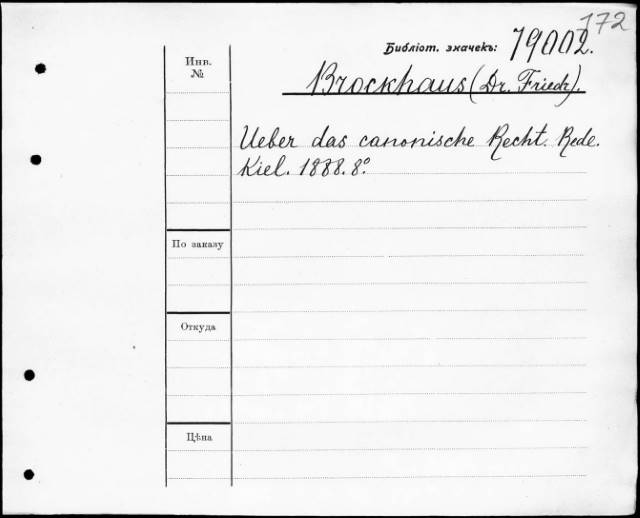 172
Библіот. значекъ: 79002.
Инв.
№
Brockhaus (Dr. Friedr).
Ueber das canonische Recht. Rede.
Kiel. 1888. 8°.
По заказу
Откуда
Цѣна